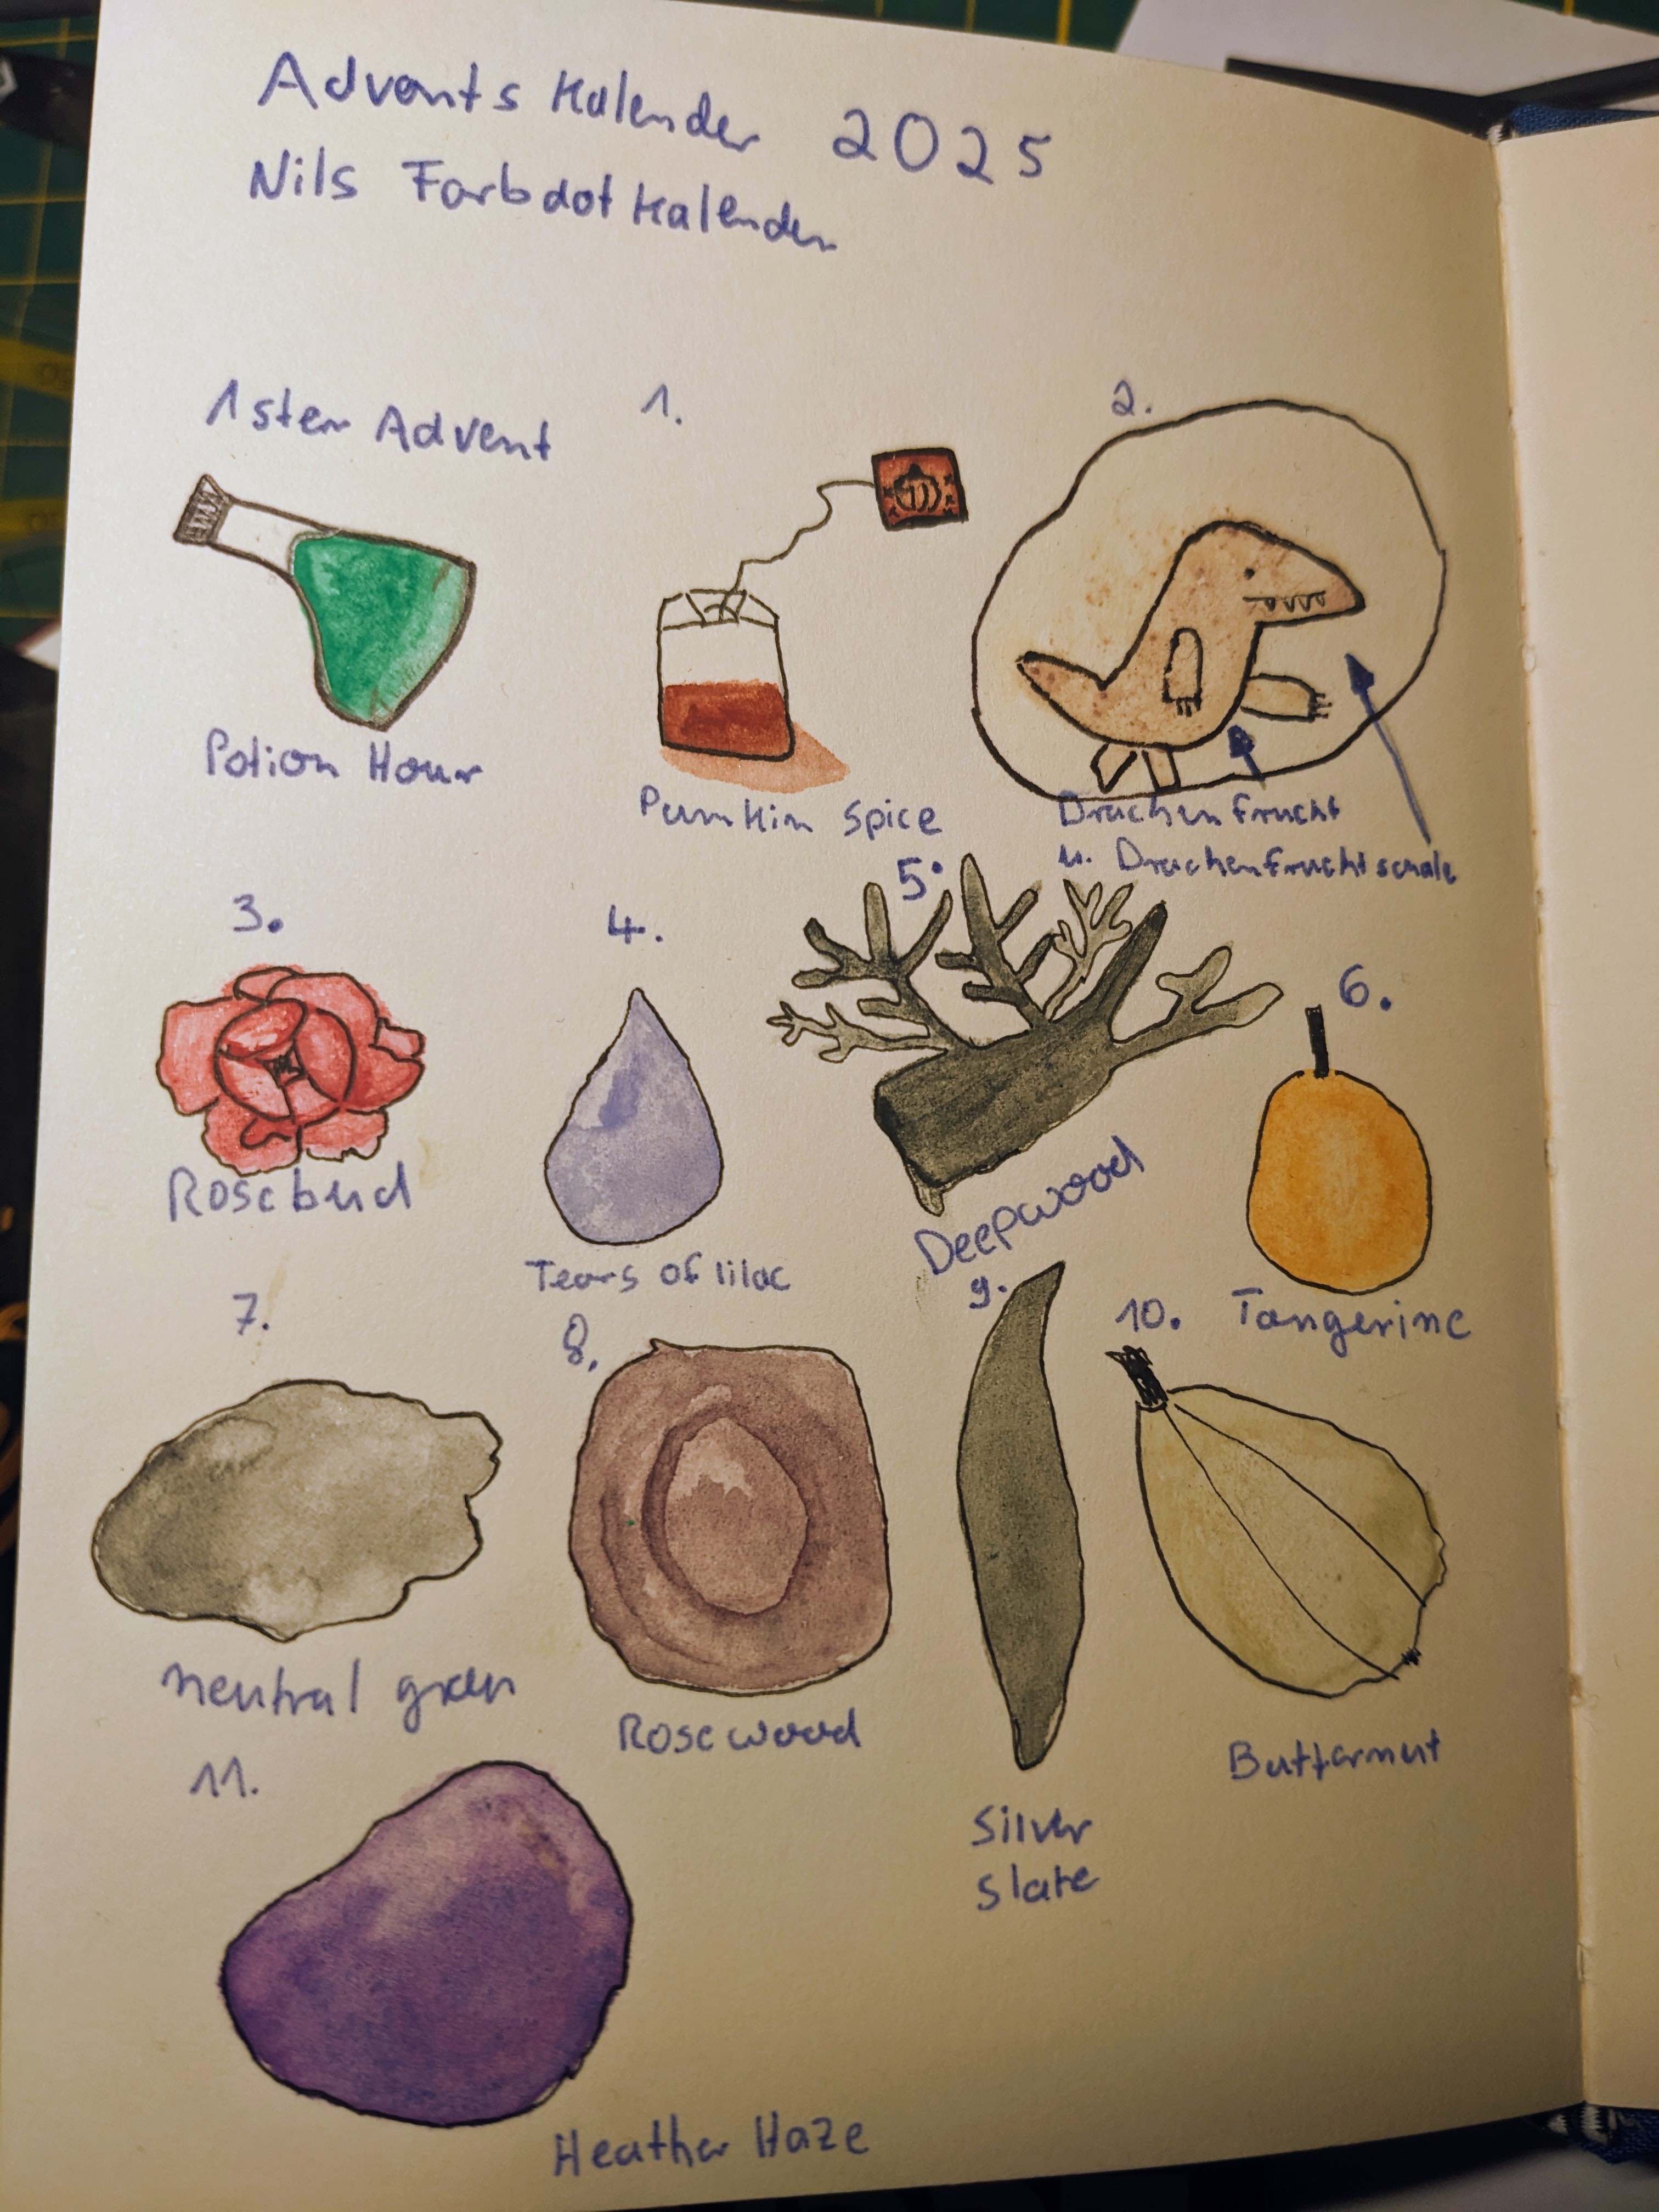 Advents Kalender 2025
Nils Farbdot Kalender
1ster Advent
Potion Hour
1.
Pumkin Spice
2.
Drachenfrucht
u. Drachenfruchtschale
3.
Rosebud
4.
Tears of lilac
5.
Deepwood
6.
Tangerine
7.
neutral green
8.
Rosewood
9.
Silver
Slate
10.
Butternut
11.
Heather Haze